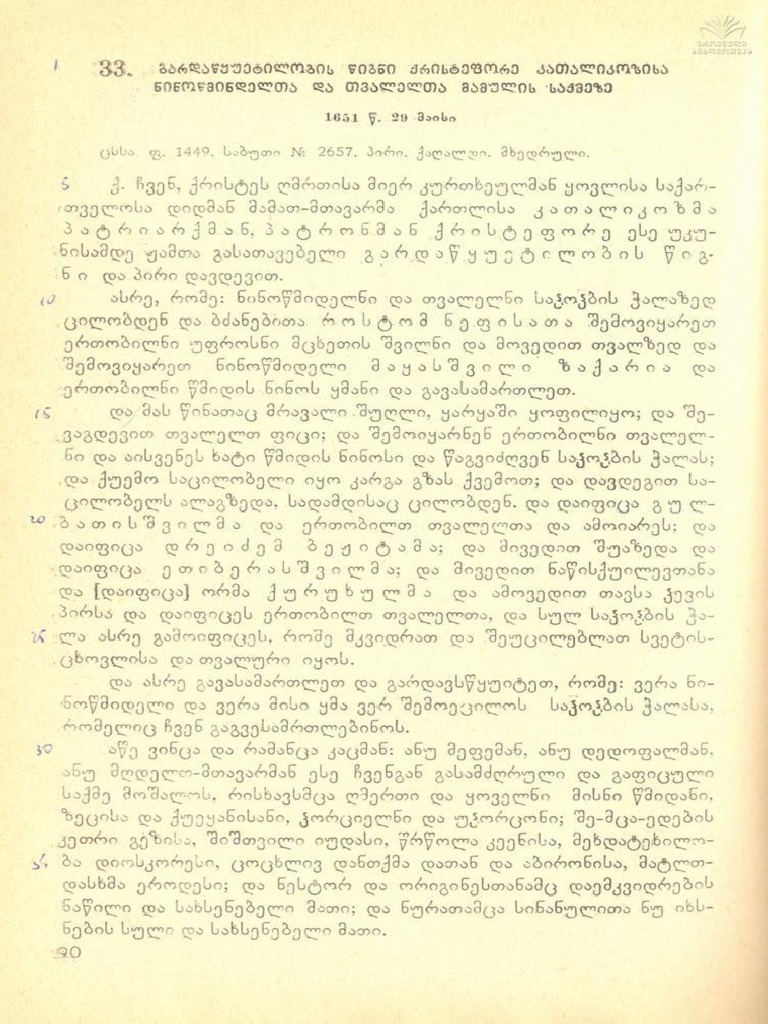 ეროვნული
ბიბლიოთეკა
1
33. გარდაწყუეტილობის წიგნი ქრისტეფორე კათალიკოზისა
ნინოწმინდელთა და თვალელთა მამულის საქმეზე
1651 წ. 29 მაისი
ცსსა. ფ. 1449. საბუთი № 2657. პირი. ქაღალდი. მხედრული.
5 ქ. ჩვენ, ქრისტეს ღმრთისა მიერ კურთხეულმან ყოვლისა საქარ-
თველოსა დიდმან მამათ-მთავარმა ქართლისა კათალიკოზმა
პატრიარქმან, პატრონმან ქრისტეფორე ესე უკუ-
ნისამდე ჟამთა გასათავებელი გარდაწყუეტილობის წიგ-
ნი და პირი დავდევით.
10 ასრე, რომე: ნინოწმიდელნი და თვალელნი საჯოჯბის ჭალაზედ
ცილობდენ და ბძანებითა როსტომ ნეფისათა შემოვიყარეთ
ერთობილნი უფროსნი მცხეთის შვილნი და მოვედით თვალზედ და
შემოვიყარეთ ნინოწმიდელი მაყასშვილი ზაქარია და
ერთობილნი წმიდის ნინოს ყმანი და გავასამართლეთ.
15 და მას წინათაც მრავალი შუღლი, ყარყაში ყოფილიყო; და შე-
ვაგდევით თვალელთ ფიცი; და შემოიყარნენ ერთობილნი თვალელ-
ნი და აისვენეს ხატი წმიდის ნინოსი და წაგვიძღვენ საჯოჯბის ჭალას;
და ქუემო საცილობელი იყო კარგა გზას ქვემოთ; და დავდეგით სა-
ცილობელს ალაგზედა, სადამდისაც ცილობდენ. და დაიფიცა გულ-
20 ბათისშვილმა და ერთობილთ თვალელთა და ამოიარეს; და
დაიფიცა დრეიძემ ბეჟიტამა; და მივედით შუაზედა და
დაიფიცა ეთიბერასშვილმა; და მივედით ნაწისქუილევთანა
და [დაიფიცა] ორმა ქურუხულმა და ამოვედით თავსა ჯევის
პირსა და დაიფიცეს ერთობილთ თვალელთა, და სულ საჯოჯბის ჭა-
25 ლა ასრე გამოიფიცეს, რომე მკვიდრათ და შეუცილებლათ სვეტის-
ცხოვლისა და თვალური იყოს.
და ასრე გავასამართლეთ და გარდავსწყუიტეთ, რომე: ვერა ნი-
ნოწმიდელი და ვერა მისი ყმა ვერ შემოეცილოს საჯოჯბის ჭალასა,
რომელიც ჩვენ გაგვესამრთლებინოს.
30 აწე ვინცა და რამანცა კაცმან: ანუ მეფემან, ანუ დედოფალმან,
ანუ მღდელთ-მთავარმან ესე ჩვენგან გასამძღრული და გაფიცული
საქმე მოშალოს, რისხავსმცა ღმერთი და ყოველნი მისნი წმიდანი,
ზეცისა და ქუეყანისანი, ჴორციელნი და უჴორცონი; შე-მცა-ედების
კეთრი გეზისა, შიშთვილი იუდასი, წრწოლა კეენისა, მეხდატეხილო-
35 ბა დიოსკორესი, ცოცხლივ დანთქმა დათან და აბირონისა, მატლთ-
დასხმა ეროდესი; და ნესტორ და ორიგინესთანამც დაემკვიდრების
ნაწილი და სახსენებელი მათი; და ნურათამცა სინანულითა ნუ იხს-
ნების სული და სახსენებელი მათი.
90